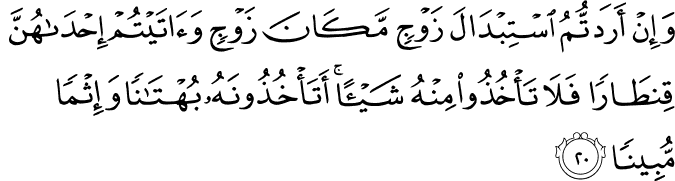 وَإِنْ أَرَدتُّمُ ٱسْتِبْدَالَ زَوْجٍ مَّكَانَ زَوْجٍ وَءَاتَيْتُمْ إِحْدَىٰهُنَّ
قِنطَارًا فَلَا تَأْخُذُوا۟ مِنْهُ شَيْـًٔا ۚ أَتَأْخُذُونَهُۥ بُهْتَـٰنًا وَإِثْمًا
مُّبِينًا ٢٠